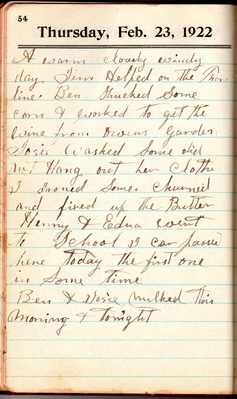 54
Thursday, Feb. 23, 1922
A warm cloudy windy
day. Jim Helped on the
line. Ben Shucked Some
corn & worked to get the
wire from Owens Garden
Josie Washed Some did
not Hang out her Clothe
I Ironed Some. Churned
and fixed up the Butter
Henry & Edna went
to School 1 car passed
here today the first one
in Some time
Ben & Josie milked this
morning & tonight